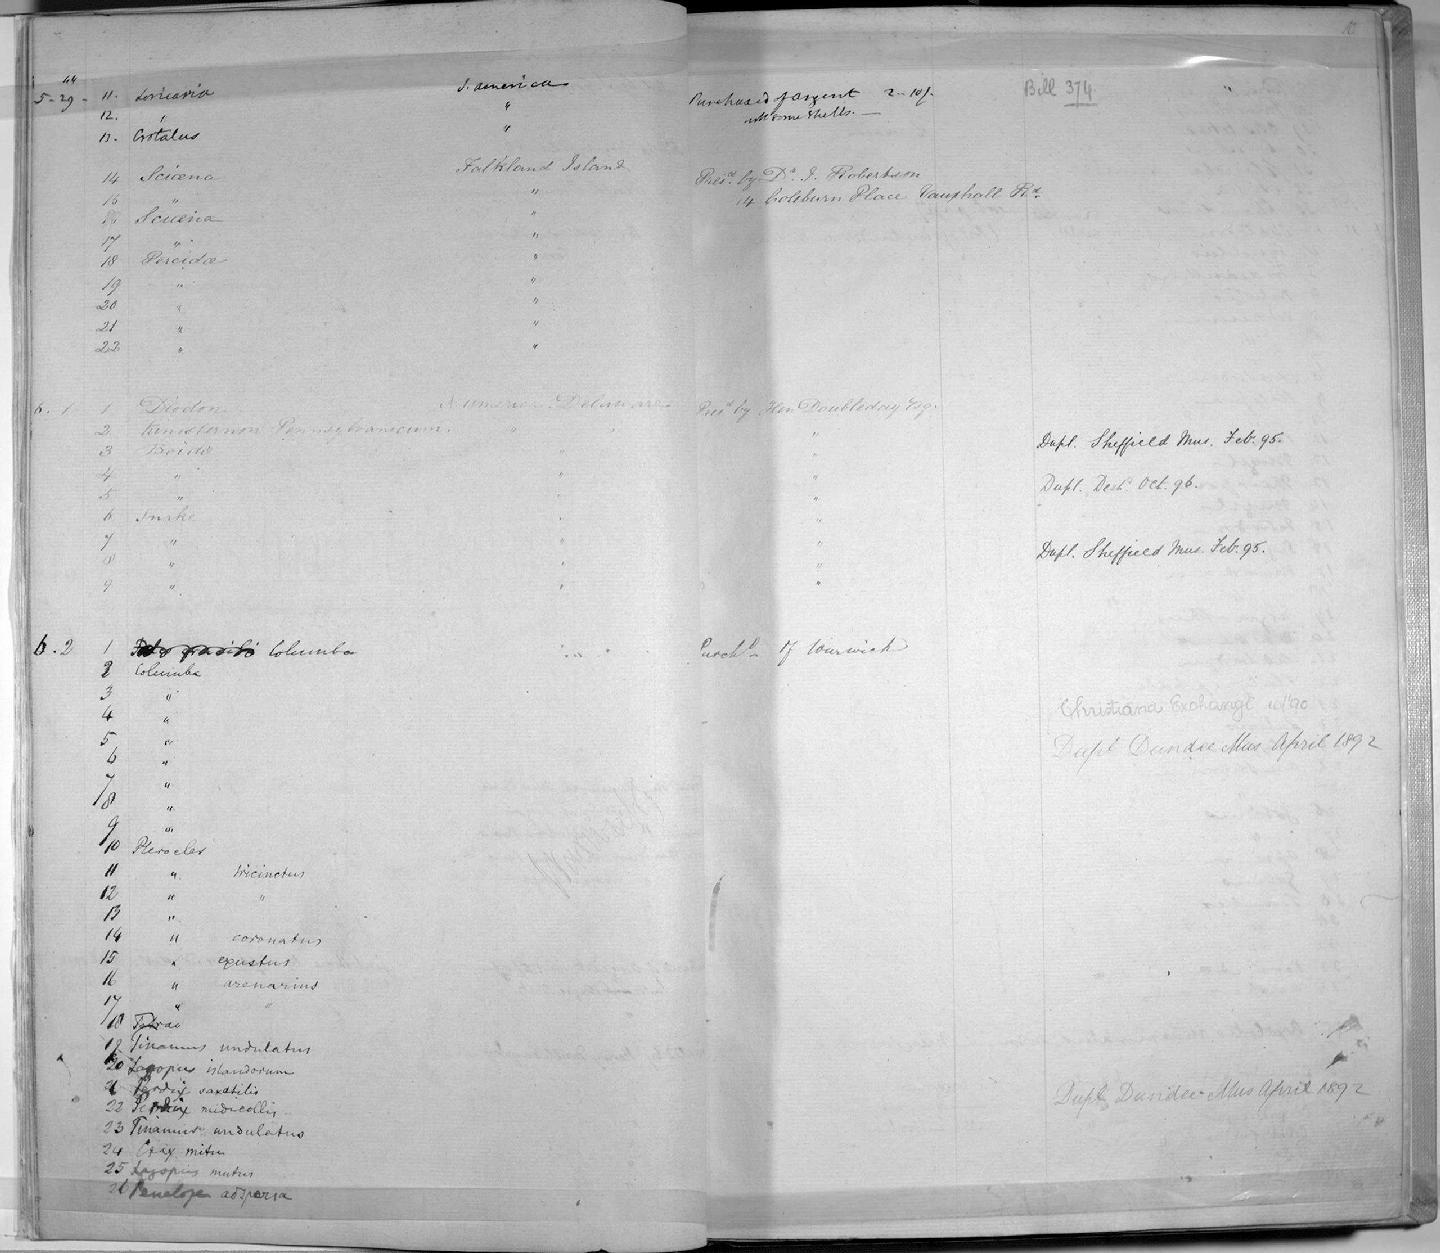 44
5-29- 11. Loricaria S. America Purchased of Argent 2-10/- Bill 374
12. " " with some shells. —
13. Crotalus "
14 Sciæna Falkland Island Pres.d by Dr. J. Robertson
15 " " 14 Coleburn Place Vauxhall Rd.
16 Sciæna "
17 " "
18 Percidæ "
19 " "
20 " "
21 " "
22 " "
6. 1 1 Diodon N. America. Delaware Pres.d by Hen Doubleday Esq.
2 Kinosternon Pennsylvanicum. " " " Dupl. Sheffield Mus. Feb. 95.
3 " "
4 " " " Dupl. Dest.d Oct. 96.
5 " " "
6 " "
7 " " " Dupl. Sheffield Mus. Feb. 95.
8 " " "
9 " " "
6-2 1 Columba " " Purch.d of Warwick
2 Columba
3 "
4 " Christiana Exchange 10/90
5 " Dupl. Dundee Mus April 1892
6 "
7 "
8 "
9 "
10 Pterocles
11 " tricinctus
12 " "
13 "
14 " coronatus
15 " exustus
16 " arenarius
17 " "
18 Tetrao
19 Tinamus undulatus
20 Lagopus islandorum
21 Perdix saxatilis
22 Perdix nudicollis Dupl. Dundee Mus April 1892
23 Tinamus undulatus
24 Crax mitu
25 Lagopus mutus
26 Penelope adspersa